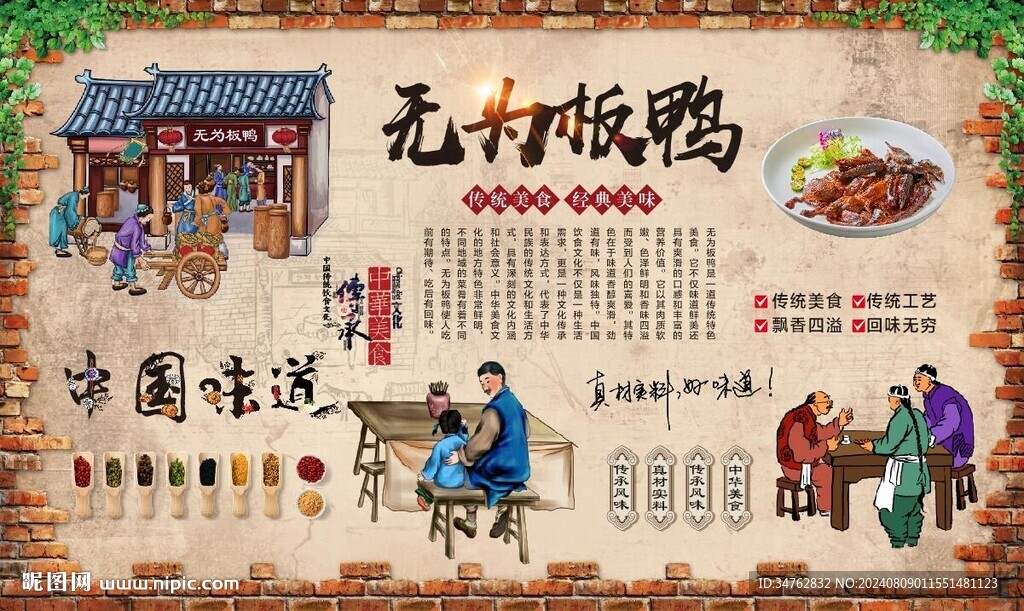 无为板鸭
无为板鸭
传统美食 经典美味
无为板鸭是一道传统特色
美食。它不仅味道鲜美还
具有爽滑的口感和丰富的
营养价值。它以其肉质软
嫩、色泽鲜明和香味四溢
而受到人们的喜爱。其特
色在于味道香醇爽滑，劲
道有味，风味独特。中国
饮食文化不仅是一种生活
需求，更是一种文化传承
和表达方式，代表了中华
民族的传统文化和生活方
式，具有深刻的文化内涵
和社会意义。中华美食文
化的地方特色非常鲜明，
不同地域的菜肴有着不同
的特点。无为板鸭使人吃
前有期待、吃后有回味。
中华美食
文化
传承
中国传统饮食文化
传统美食
传统工艺
飘香四溢
回味无穷
中国味道
真材实料,好味道!
传承风味
真材实料
传承风味
中华美食
昵图网 www.nipic.com
ID:34762832 NO:20240809011551481123